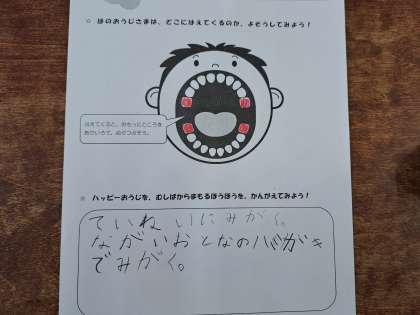 ☆ はのおうじさまは、どこにはえてくるのか、よそうしてみよう！
はえてくると、おもったところを
あかいろで、ぬりつぶそう。
☆ ハッピーおうじを、むしばからまもるほうほうを、かんがえてみよう！
ていねいにみがく。
ながいおとなのハブガキ
でみがく。